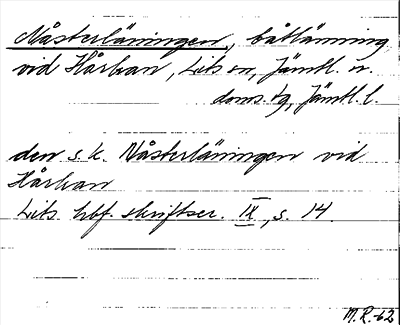 Nåsterläningen, båtlänning
vid Hårkan, Lits sn, Jämtl. n.
doms. tg, Jämtl. l.
den s.k. Nåsterläningen vid
Hårkan
Lits hbf. skriftser. IX, s. 14
M.R.-62